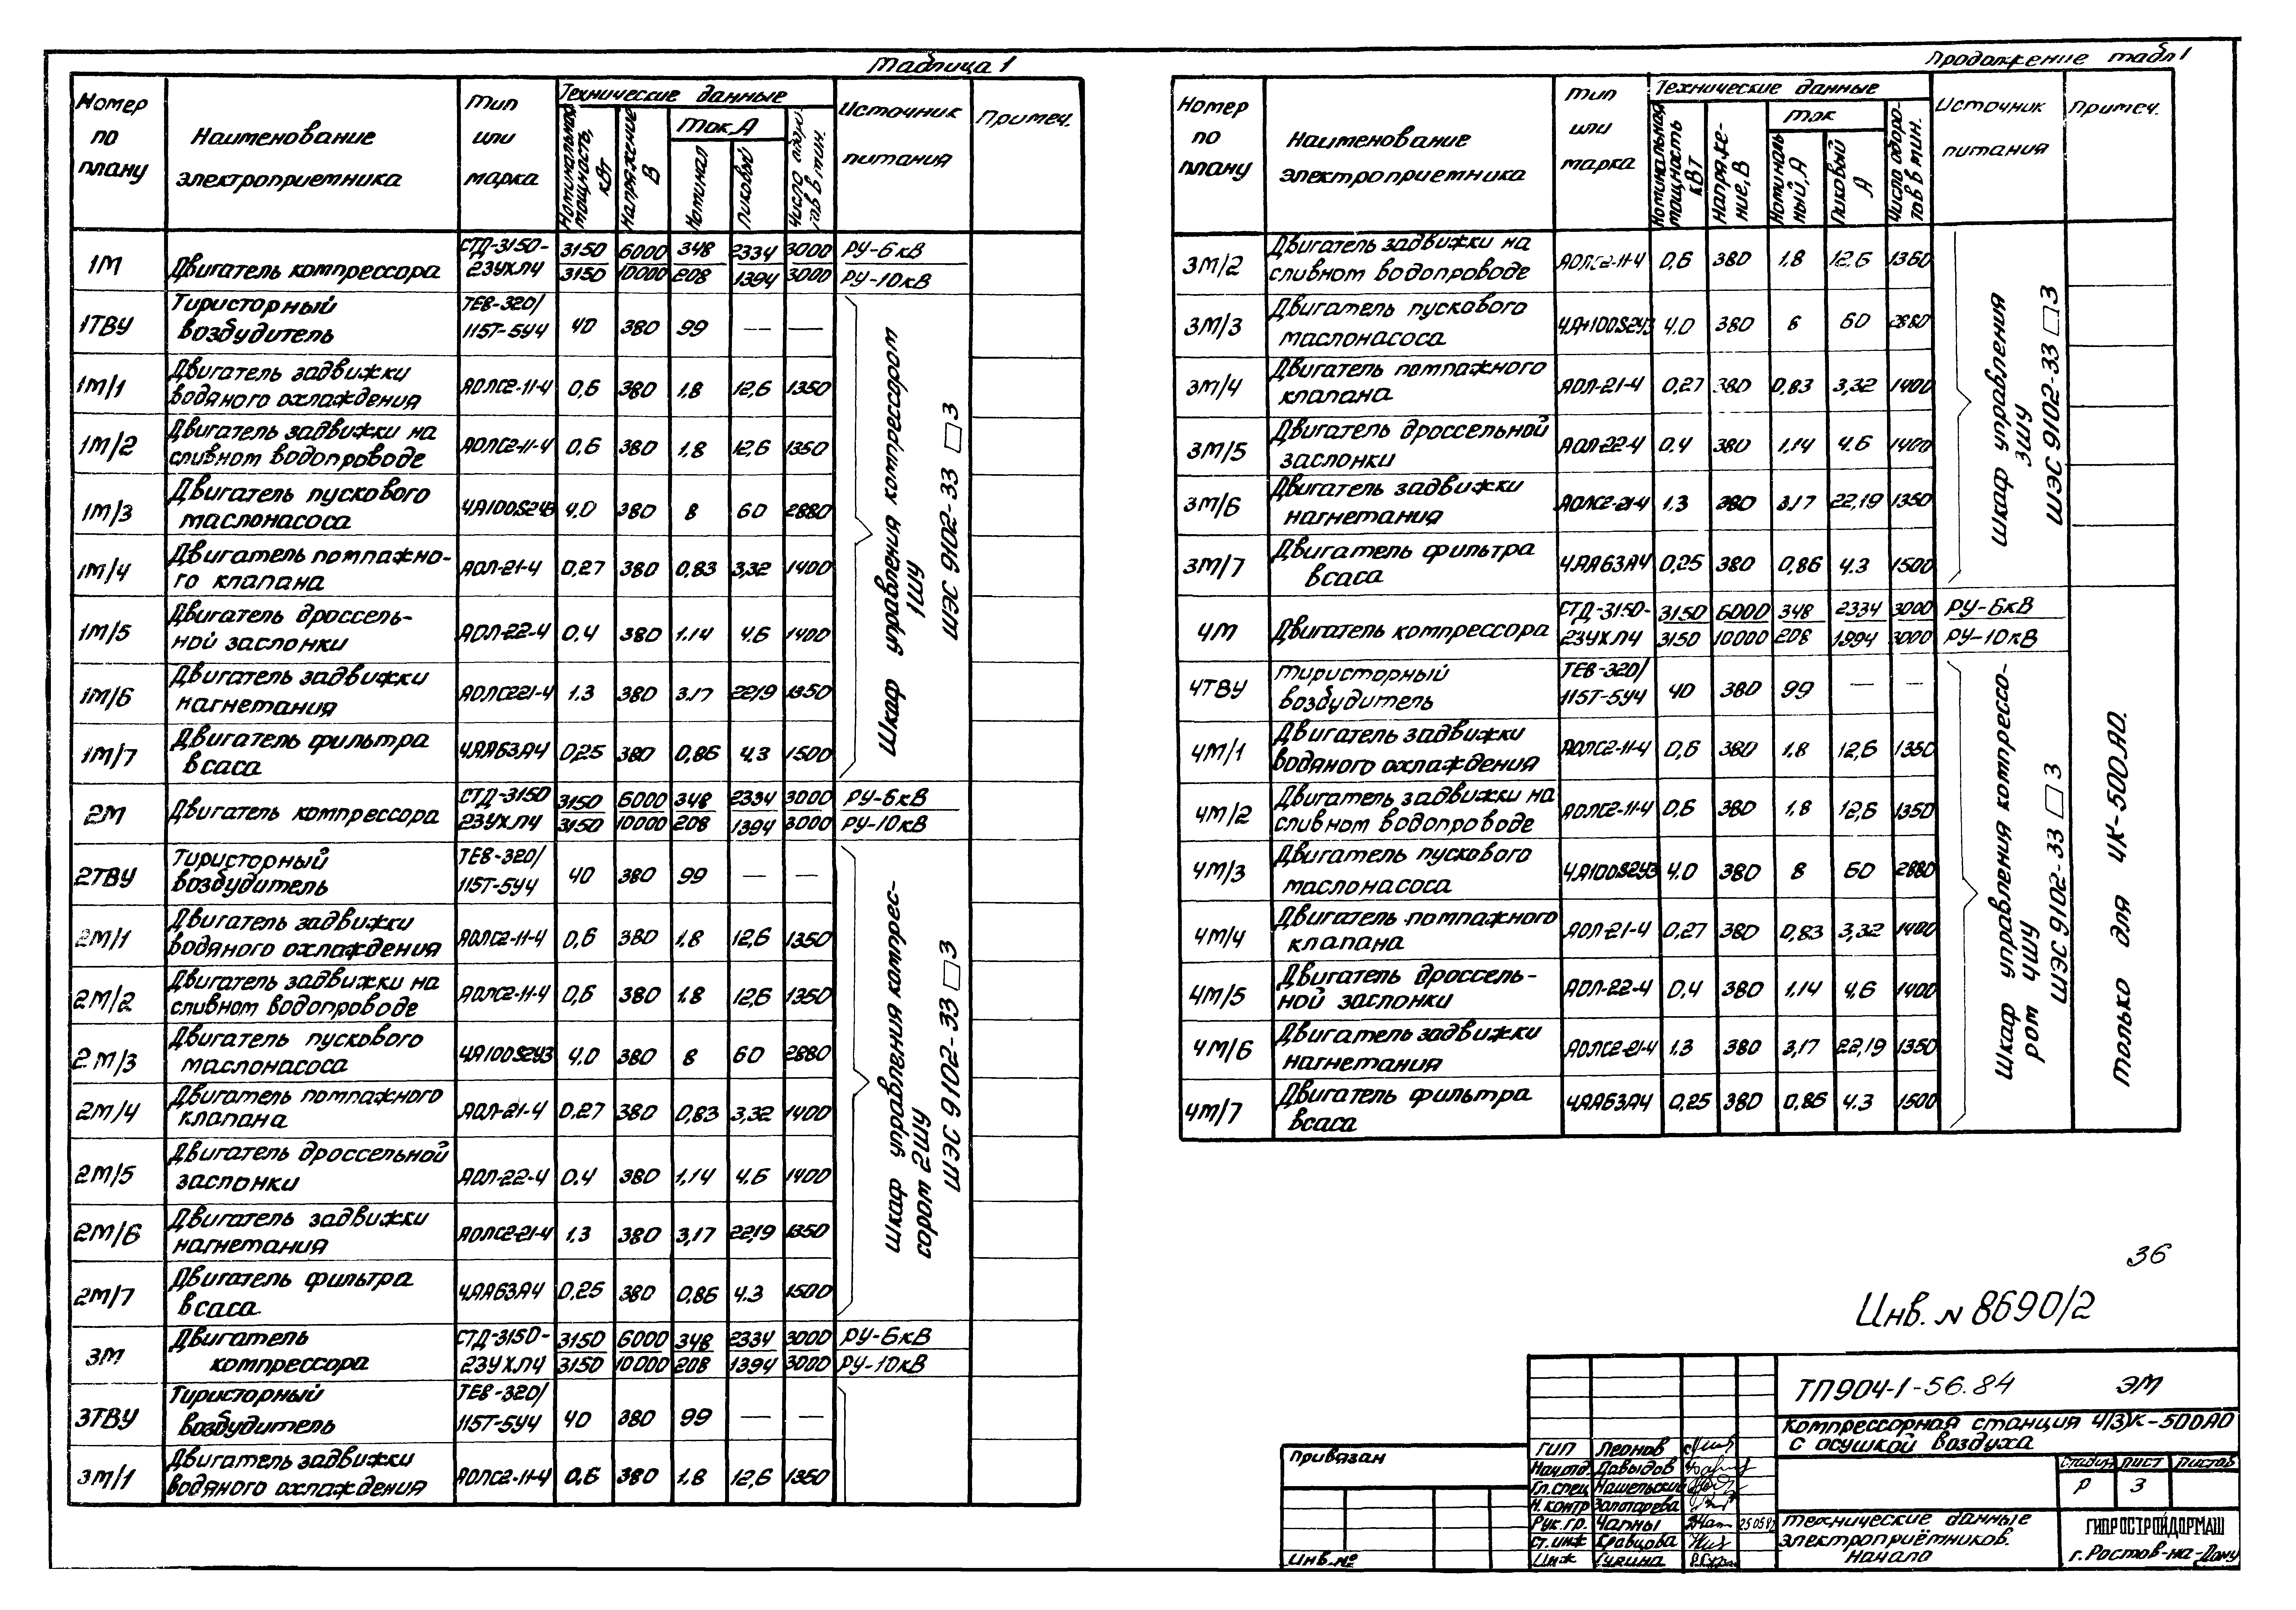 Таблица 1
Номер по плану | Наименование электроприемника | Тип или марка | Технические данные | Источник питания | Примеч.
Номинальная мощность, кВт | Напряжение В | Ток, А | Число оборотов в мин.
Номинал | Пиковый
1М | Двигатель компрессора | СТД-3150-23УХЛ4 | 3150 3150 | 6000 10000 | 348 208 | 2334 1394 | 3000 3000 | РУ-6кВ РУ-10кВ
1ТВУ | Тиристорный возбудитель | ТЕ8-320/115Т-5У4 | 40 | 380 | 99 | — | —
1М/1 | Двигатель задвижки водяного охлаждения | АОЛС2-11-4 | 0,6 | 380 | 1.8 | 12,6 | 1350
1М/2 | Двигатель задвижки на сливном водопроводе | АОЛС2-11-4 | 0,6 | 380 | 1.8 | 12,6 | 1350
1М/3 | Двигатель пускового маслонасоса | 4А100S2У3 | 4.0 | 380 | 8 | 60 | 2880
1М/4 | Двигатель помпажно-го клапана | АОЛ-21-4 | 0,27 | 380 | 0,83 | 3,32 | 1400
1М/5 | Двигатель дроссель-ной заслонки | АОЛ-22-4 | 0,4 | 380 | 1.14 | 4.6 | 1400
1М/6 | Двигатель задвижки нагнетания | АОЛС221-4 | 1.3 | 380 | 3.17 | 22,19 | 1350
1М/7 | Двигатель фильтра всаса | 4АА63А4 | 0,25 | 380 | 0,86 | 4.3 | 1500
Шкаф управления компрессором 1ШУ ШЭС 9102-33 □ 3
2М | Двигатель компрессора | СТД-3150 23УХЛ4 | 3150 3150 | 6000 10000 | 348 208 | 2334 1394 | 3000 3000 | РУ-6кВ РУ-10кВ
2ТВУ | Тиристорный возбудитель | ТЕ8-320/115Т-5У4 | 40 | 380 | 99 | — | —
2М/1 | Двигатель задвижки водяного охлаждения | АОЛС2-11-4 | 0,6 | 380 | 1.8 | 12,6 | 1350
2М/2 | Двигатель задвижки на сливном водопроводе | АОЛС2-11-4 | 0,6 | 380 | 1.8 | 12,6 | 1350
2М/3 | Двигатель пускового маслонасоса | 4А100S2У3 | 4.0 | 380 | 8 | 60 | 2880
2М/4 | Двигатель помпажного клапана | АОЛ-21-4 | 0,27 | 380 | 0,83 | 3,32 | 1400
2М/5 | Двигатель дроссельной заслонки | АОЛ-22-4 | 0.4 | 380 | 1,14 | 4.6 | 1400
2М/6 | Двигатель задвижки нагнетания | АОЛС2-21-4 | 1.3 | 380 | 3,17 | 22,19 | 1350
2М/7 | Двигатель фильтра всаса | 4АА63А4 | 0,25 | 380 | 0,86 | 4.3 | 1500
Шкаф управления компрес-сором 2ШУ ШЭС 9102-33 □ 3
3М | Двигатель компрессора | СТД-3150-23УХЛ4 | 3150 3150 | 6000 10000 | 348 208 | 2334 1394 | 3000 3000 | РУ-6кВ РУ-10кВ
3ТВУ | Тиристорный возбудитель | ТЕ8-320/115Т-5У4 | 40 | 380 | 99 | — | —
3М/1 | Двигатель задвижки водяного охлаждения | АОЛС2-11-4 | 0,6 | 380 | 1.8 | 12,6 | 1350
Продолжение табл 1
Номер по плану | Наименование электроприемника | Тип или марка | Технические данные | Источник питания | Примеч.
Номинальная мощность кВт | Напряже-ние, В | Ток | Число оборо-тов в мин.
Номиналь ный, А | Пиковый А
3М/2 | Двигатель задвижки на сливном водопроводе | АОЛС2-11-4 | 0,6 | 380 | 1.8 | 12,6 | 1360
3М/3 | Двигатель пускового маслонасоса | 4А100S2У3 | 4.0 | 380 | 8 | 60 | 2880
3М/4 | Двигатель помпажного клапана | АОЛ-21-4 | 0,27 | 380 | 0,83 | 3,32 | 1400
3М/5 | Двигатель дроссельной заслонки | АОЛ-22-4 | 0.4 | 380 | 1,14 | 4.6 | 1400
3М/6 | Двигатель задвижки нагнетания | АОЛС2-21-4 | 1.3 | 380 | 3.17 | 22,19 | 1350
3М/7 | Двигатель фильтра всаса | 4АА63А4 | 0,25 | 380 | 0,86 | 4.3 | 1500
Шкаф управления 3ШУ ШЭС 9102-33 □ 3
4М | Двигатель компрессора | СТД-3150-23УХЛ4 | 3150 3150 | 6000 10000 | 348 208 | 2334 1394 | 3000 3000 | РУ-6кВ РУ-10кВ
4ТВУ | Тиристорный возбудитель | ТЕ8-320/115Т-5У4 | 40 | 380 | 99 | — | —
4М/1 | Двигатель задвижки водяного охлаждения | АОЛС2-11-4 | 0,6 | 380 | 1.8 | 12,6 | 1350
4М/2 | Двигатель задвижки на сливном водопроводе | АОЛС2-11-4 | 0,6 | 380 | 1.8 | 12,6 | 1350
4М/3 | Двигатель пускового маслонасоса | 4А100S2У3 | 4.0 | 380 | 8 | 60 | 2880
4М/4 | Двигатель помпажного клапана | АОЛ-21-4 | 0,27 | 380 | 0,83 | 3,32 | 1400
4М/5 | Двигатель дроссель-ной заслонки | АОЛ-22-4 | 0,4 | 380 | 1,14 | 4,6 | 1400
4М/6 | Двигатель задвижки нагнетания | АОЛС2-21-4 | 1.3 | 380 | 3,17 | 22,19 | 1350
4М/7 | Двигатель фильтра всаса | 4АА63А4 | 0,25 | 380 | 0,86 | 4.3 | 1500
Шкаф управления компрессо-ром 4ШУ ШЭС 9102-33 □ 3
Только для 4К-500АО.
36
Инв. N 8690/2
ТП904-1-56.84 ЭМ
Компрессорная станция 4(3)К-500АО
с осушкой воздуха
Привязан
Инв.№
ГИП Леонов
Нач.отд Давыдов
Гл.спец Нашельский
Н.контр Золотарева
Рук.гр. Чапны
Ст.инж Кравцова
Инж Гурина
Стадия Лист Листов
Р 3
Технические данные
электроприёмников.
Начало
ГИПРОСТРОЙДОРМАШ
г.Ростов-на-Дону